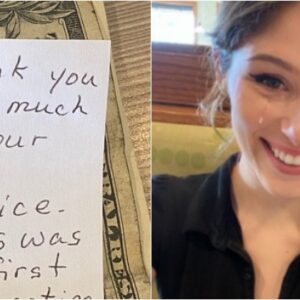 nk you
much
our
ice.
s was
first